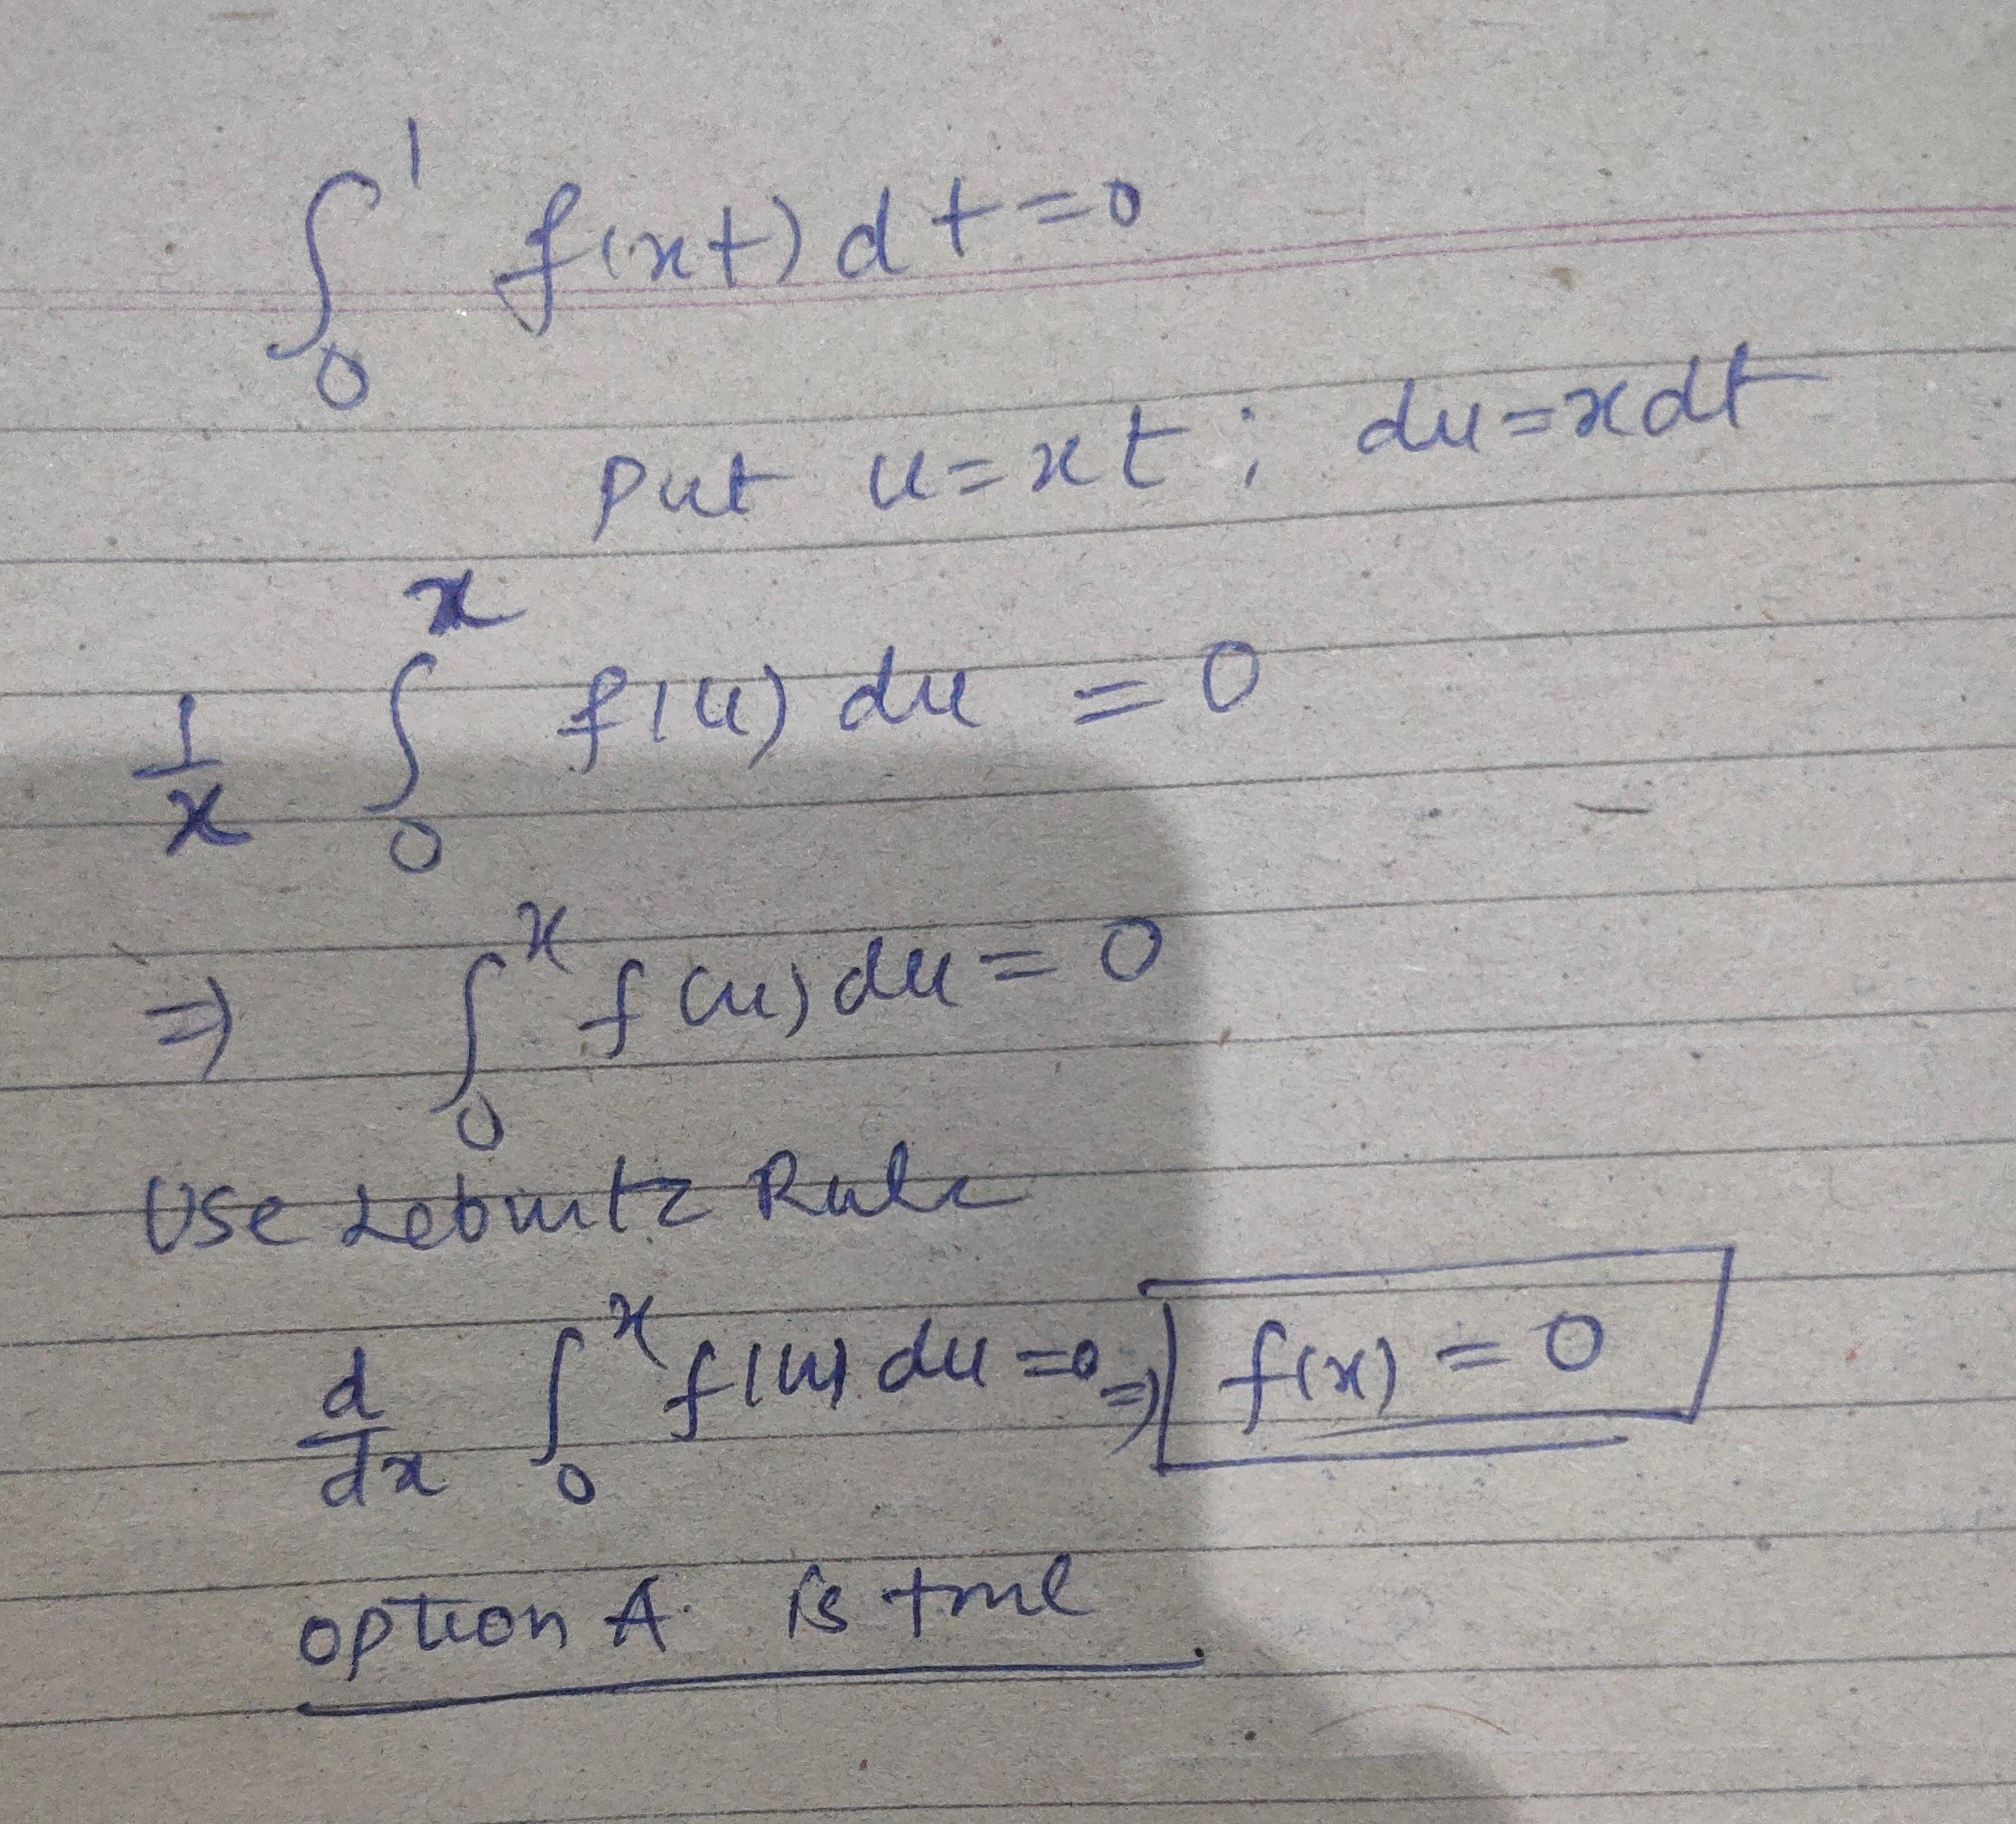 ∫₀¹ f(xt) dt = 0
Put u = xt ; du = x dt
1/x ∫₀ˣ f(u) du = 0
⇒ ∫₀ˣ f(u) du = 0
Use Lebnitz Rule
d/dx ∫₀ˣ f(u) du = 0 ⇒ f(x) = 0
option A is true.